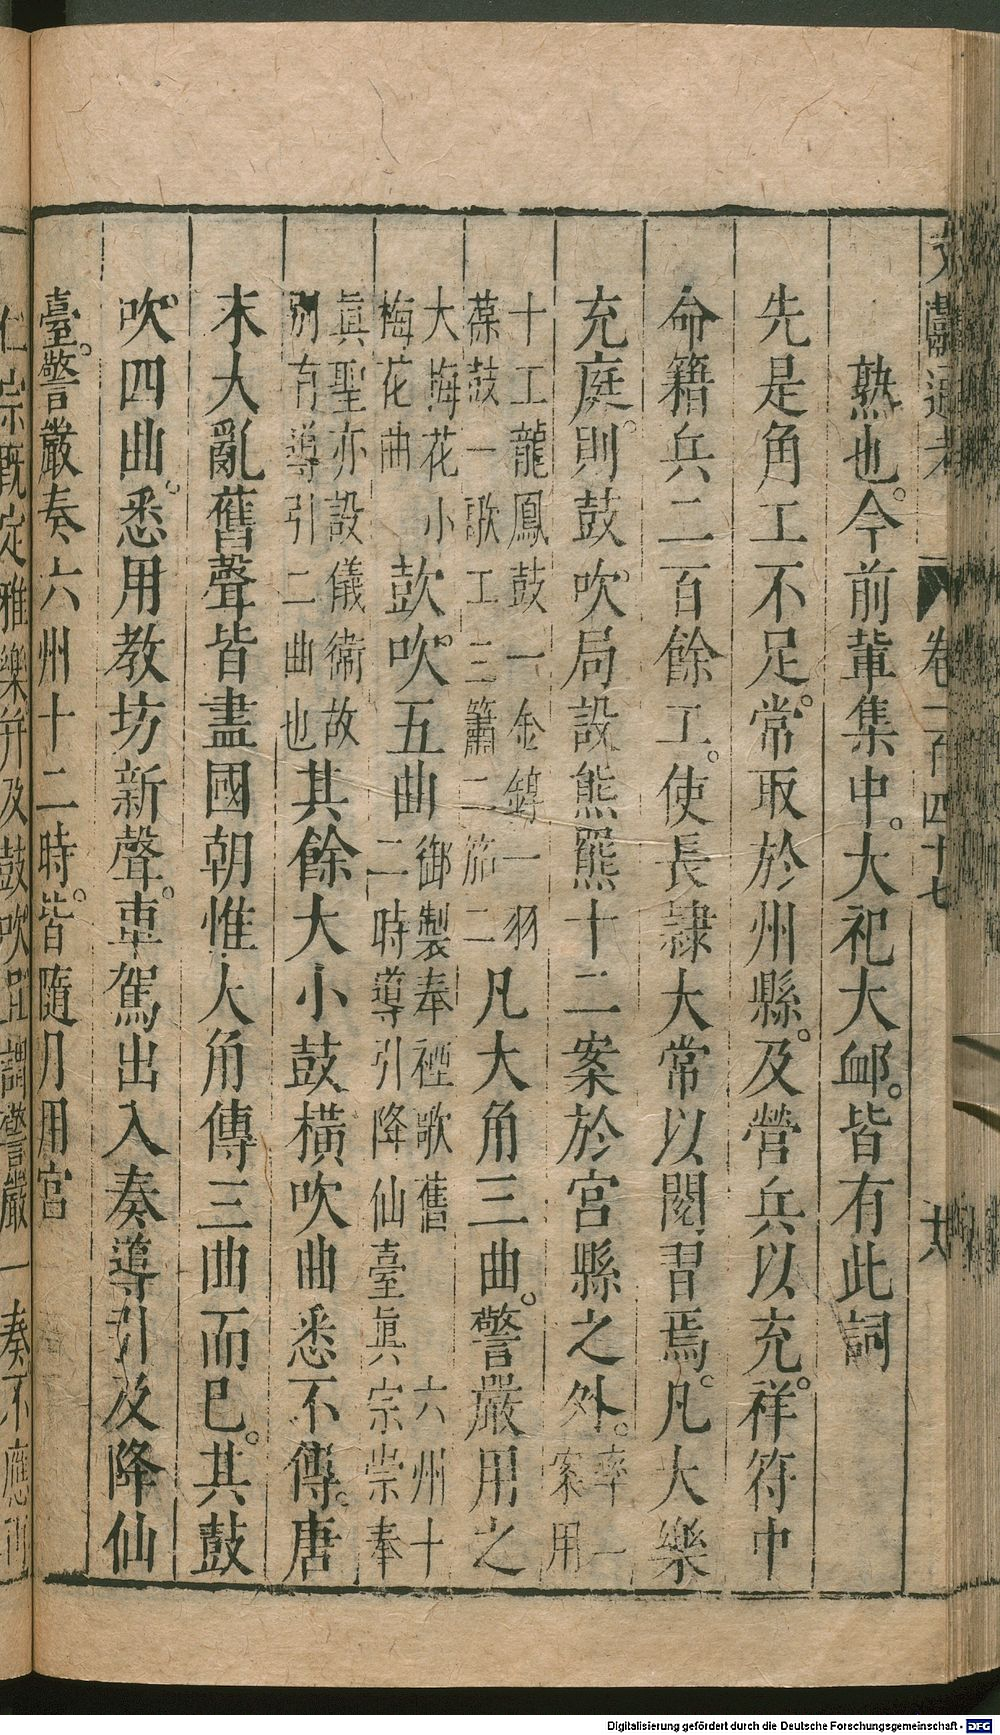 文獻通考 卷一百四十七 六
熟也。今前輩集中。大祀大䘏。皆有此詞
先是角工不足。常取於州縣。及營兵以充。祥符中
命籍兵二百餘工。使長隷大常以閱習焉。凡大樂
充庭。則鼓吹局設熊羆十二案於宮縣之外。率一案用
十工龍鳳鼓一金錞一羽葆鼓一歌工三簫二笳二凡大角三曲。警嚴用之
大梅花小梅花曲鼓吹五曲御製奉禋歌舊二時導引降仙臺眞宗崇奉六州十
眞聖亦設儀衛故別有導引二曲也其餘大小鼓橫吹曲悉不傳。唐
末大亂舊聲皆盡國朝惟大角傳三曲而已。其鼓
吹四曲。悉用教坊新聲。車駕出入奏導引及降仙
臺。警嚴奏六州十二時。皆隨月用宮
仁宗旣定雅樂并及鼓吹且謂警嚴一奏不應
Digitalisierung gefördert durch die Deutsche Forschungsgemeinschaft - DFG